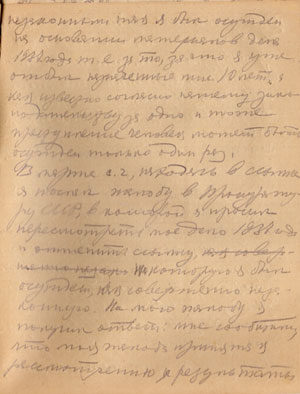 незаконным так я был осужден
на основании материалов дела
1938 года т.е. за то, за что я уже
отбыл назначенные мне 10 лет, а
как известно согласно нашему зако
нодательству за одно и тоже
преступление человек может быть
осужден только один раз.
В марте с.г., находясь в ссылке
я послал жалобу в Прокурату
ру СССР, в которой я просил
пересмотреть мое дело 1938 года
и отменить ссылку,
на которую я был
осужден, как совершенно неза-
конную. На мою жалобу я
получил ответ: мне сообщили,
что моя жалоба принята к
рассмотрению и результаты